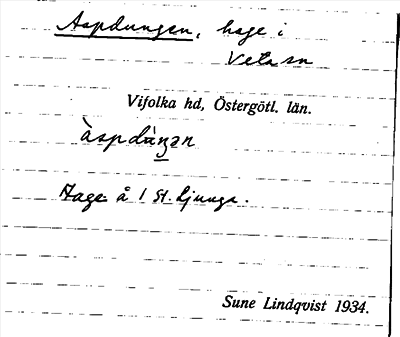 Aspdungen, hage i
Veta sn
Vifolka hd, Östergötl. län.
àspdùŋən
Hage å 1 St. Ljunga.
Sune Lindqvist 1934.